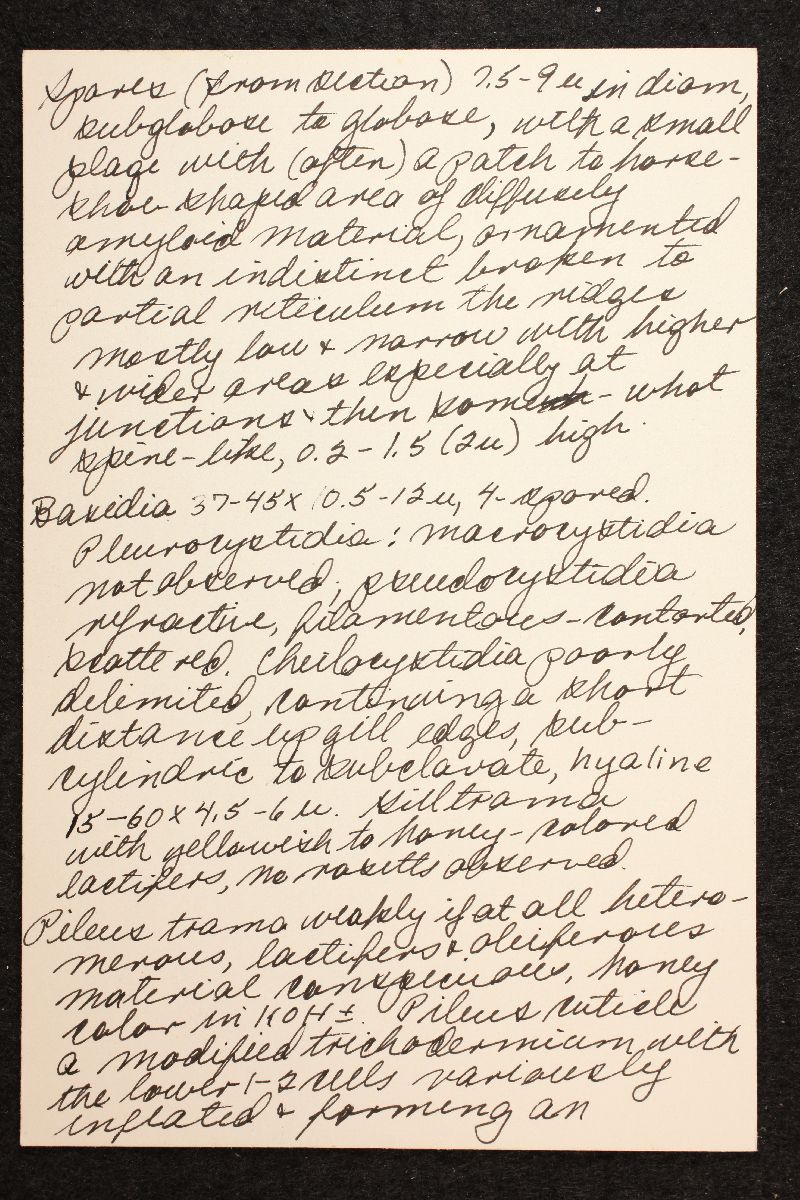 Spores (from section) 7.5-9 u in diam,
subglobose to globose, with a small
plage with (often) a patch to horse-
shoe shaped area of diffusely
amyloid material, ornamented
with an indistinct broken to
partial reticulum the ridges
mostly low & narrow with higher
& wider areas especially at
junctions & then some-what
spine-like, 0.2-1.5 (2u) high.
Basidia 37-45 x 10.5-12u, 4-spored.
Pleurocystidia: macrocystidia
not observed; pseudocystidia
refractive, filamentous-contorted,
scattered. Cheilocystidia poorly
delimited, continuing a short
distance up gill edges, sub-
cylindric to subclavate, hyaline
15-60 x 4.5-6 u. Gill trama
with yellowish to honey-colored
lactifers, no rosetts observed.
Pileus trama weakly if at all hetero-
merous, lactifers & oleiferous
material conspicuous, honey
color in KOH ±. Pileus cuticle
a modified trichodermium with
the lower 1-2 cells variously
inflated & forming an